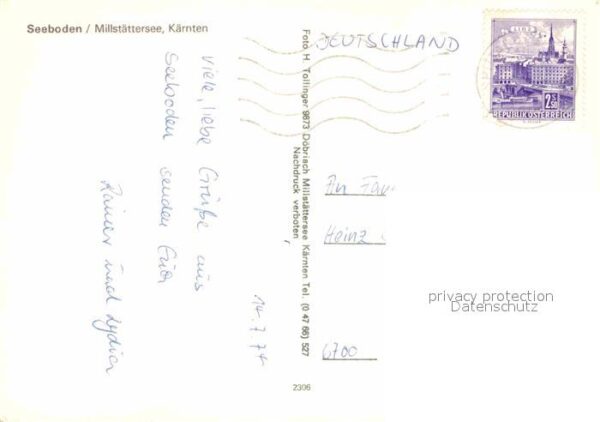 Seeboden / Millstättersee, Kärnten
14.7.74
Viele, liebe Grüße aus
Seeboden senden Euch
Rainer und Lydia
Foto H. Tollinger 9873 Döbriach Millstättersee Kärnten Tel. (0 47 66) 527
Nachdruck verboten
2306
DEUTSCHLAND
LINZ
2.50
REPUBLIK ÖSTERREICH
An Fam
Heinz
6700
privacy protection
Datenschutz